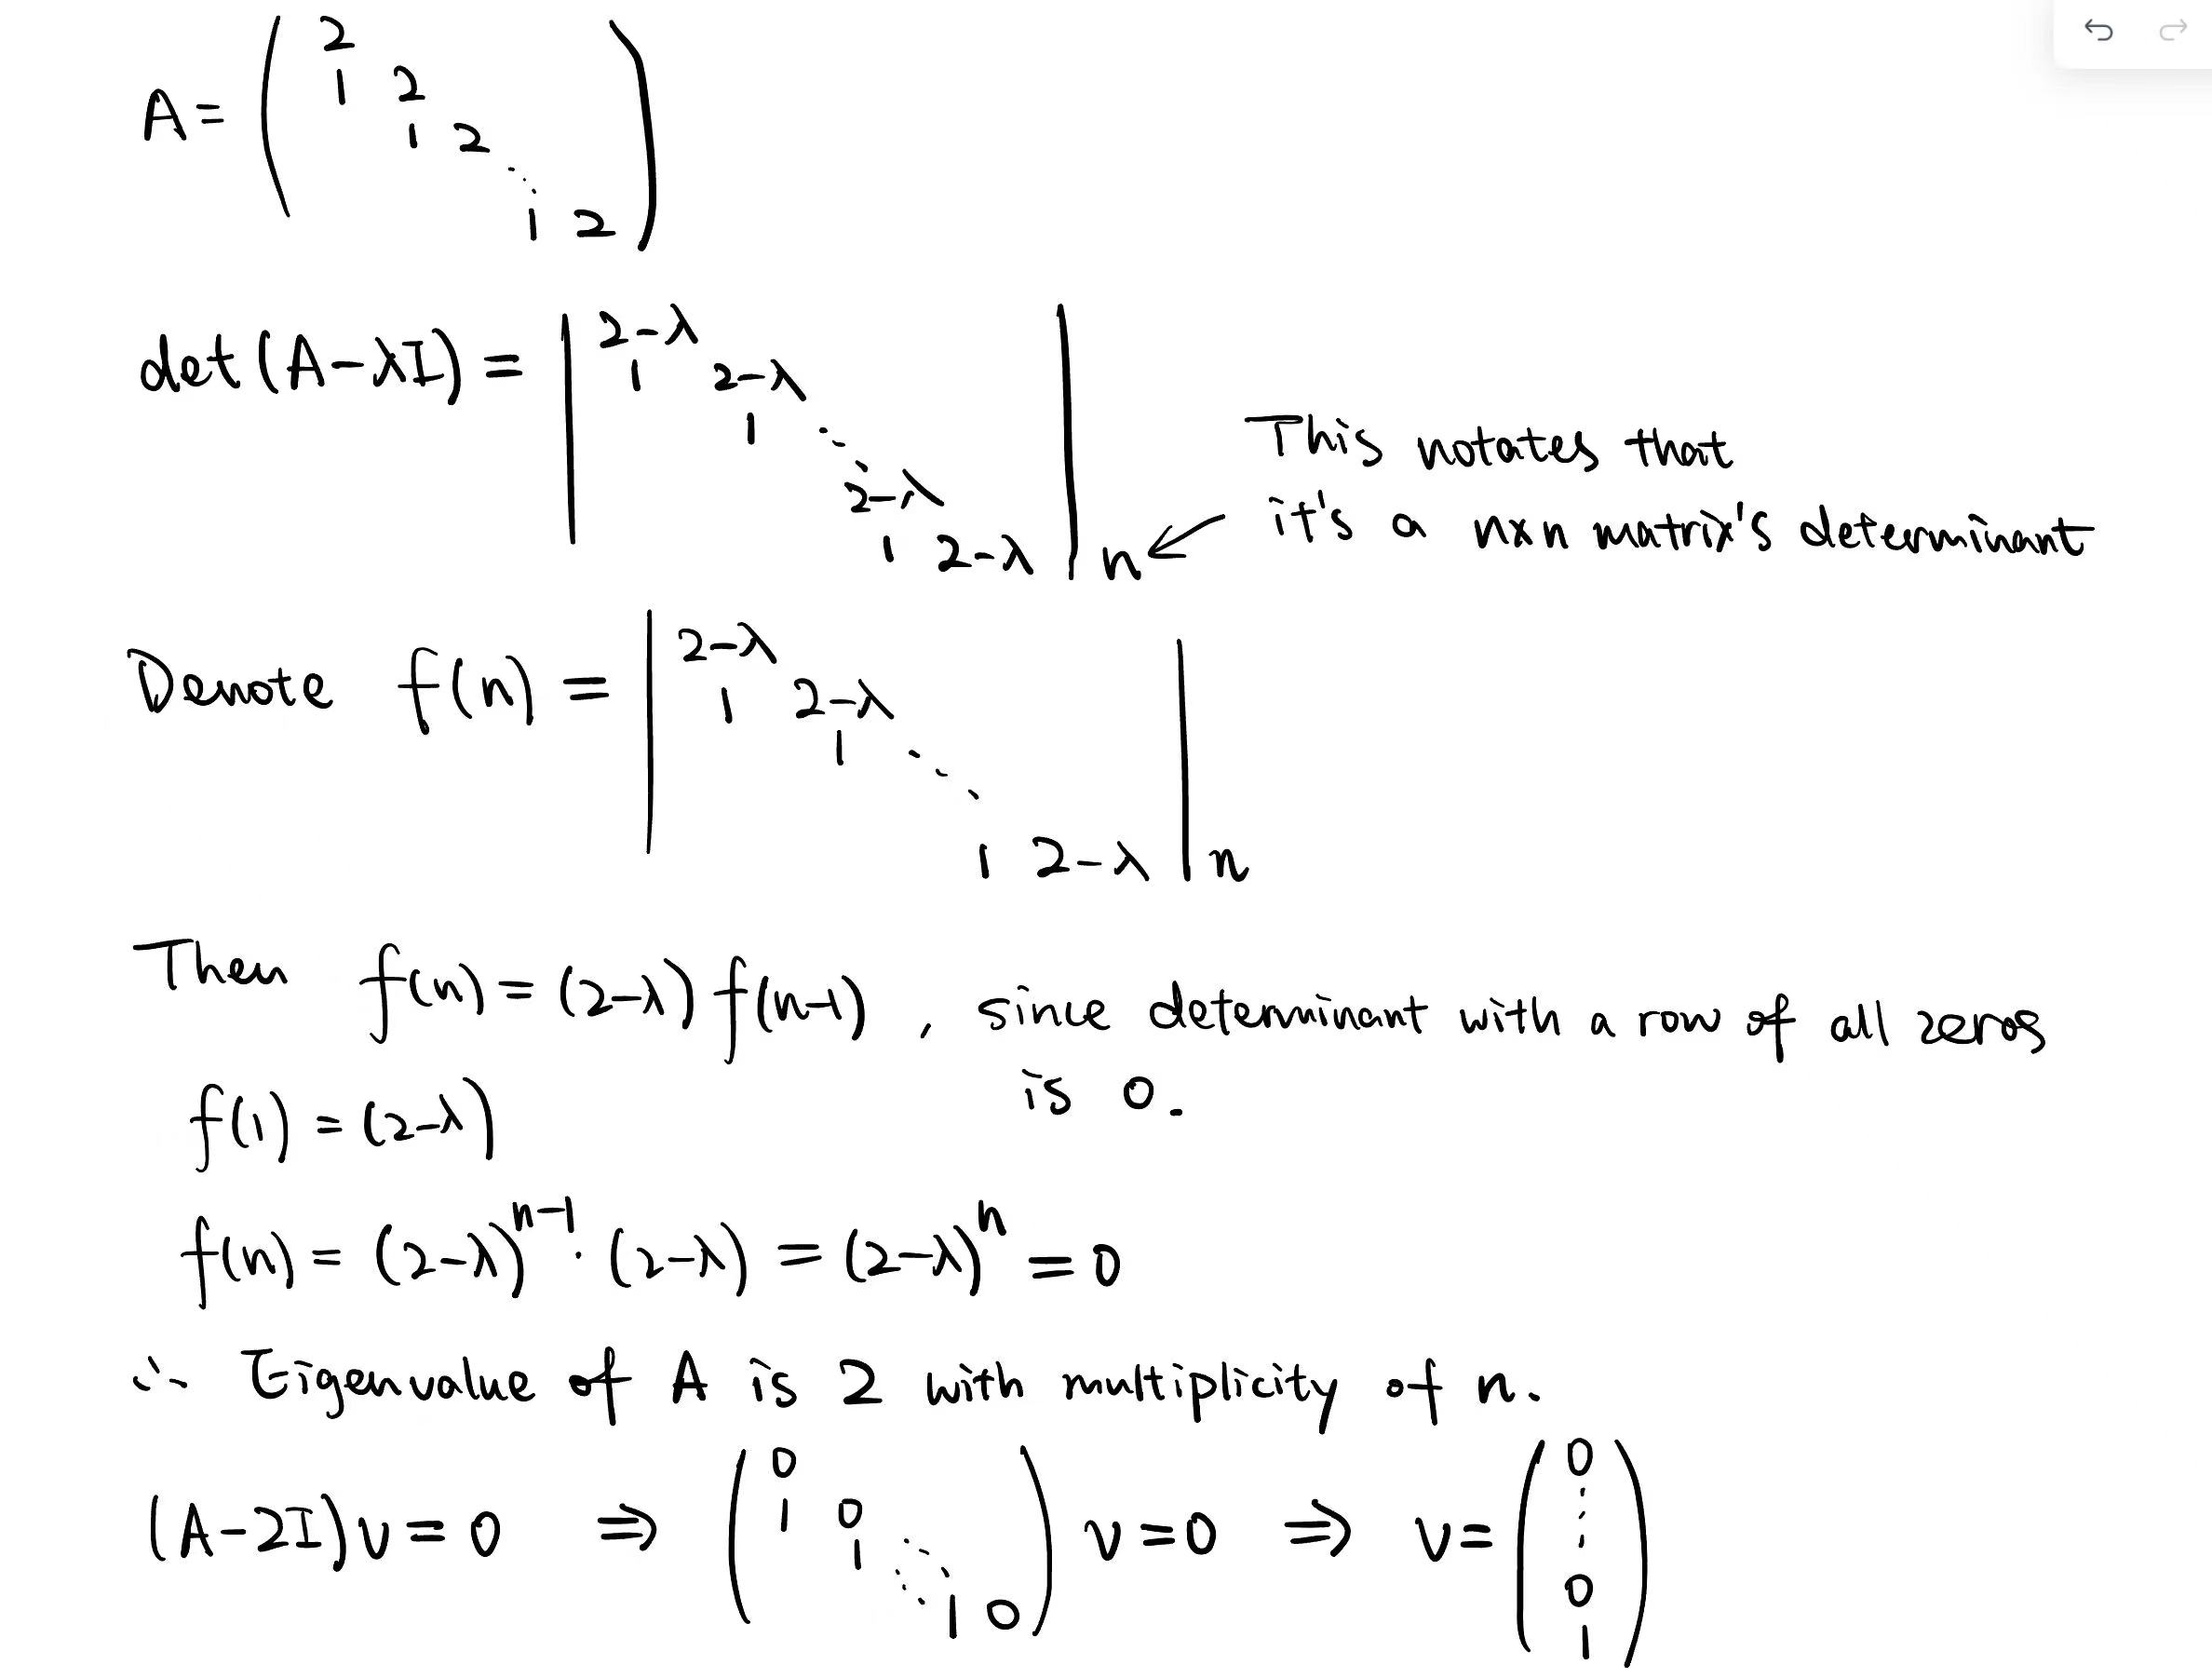 A = ( 2
1 2
1 2
⋱
1 2 )
det(A-λI) = | 2-λ
1 2-λ
1 ⋱
2-λ
1 2-λ |n
This notates that
it's a nxn matrix's determinant
Denote f(n) = | 2-λ
1 2-λ
1 ⋱
1 2-λ |n
Then f(n) = (2-λ) f(n-1), since determinant with a row of all zeros
is 0.
f(1) = (2-λ)
f(n) = (2-λ)^{n-1} · (2-λ) = (2-λ)^n = 0
∴ Eigenvalue of A is 2 with multiplicity of n.
(A-2I)v = 0 ⇒ ( 0
1 0
1 ⋱
⋱ 1 0 ) v = 0 ⇒ v = ( 0
⋮
0
1 )